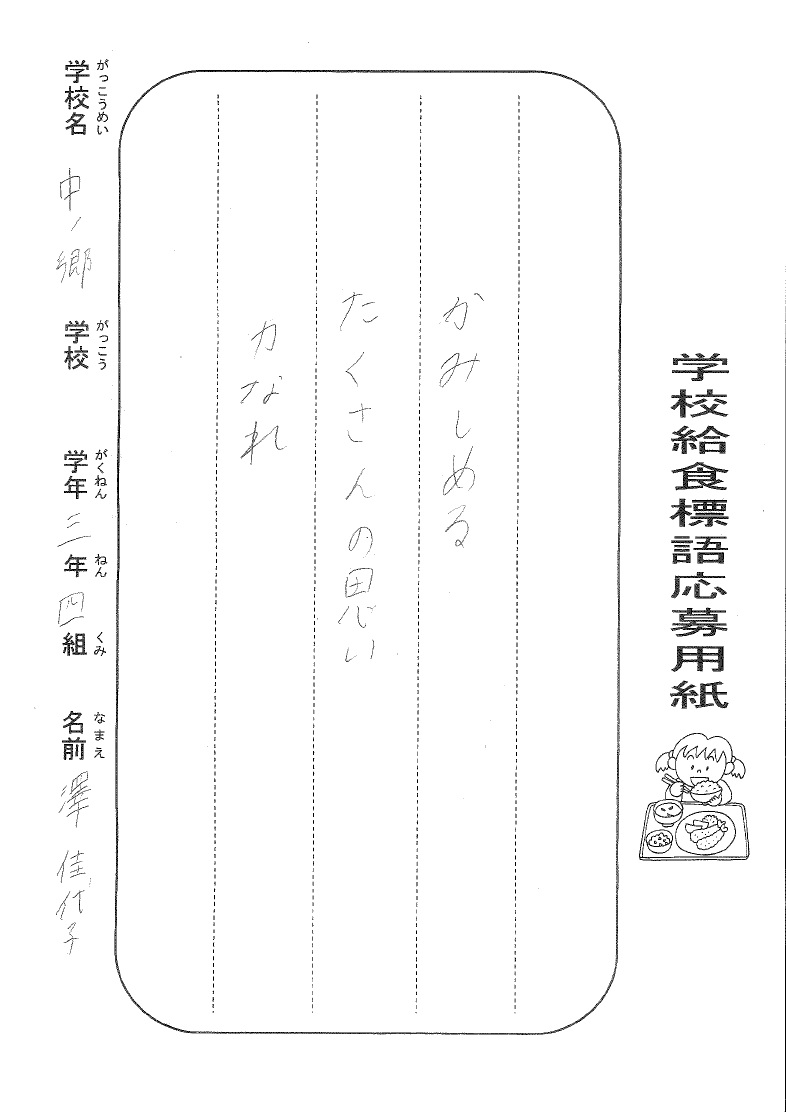 学校給食標語応募用紙
かみしめる
たくさんの思い
力なれ
学校名 中ノ郷 学校 学年 三年 四組 名前 澤 佳代子
がっこうめい がっこう がくねん ねん くみ なまえ